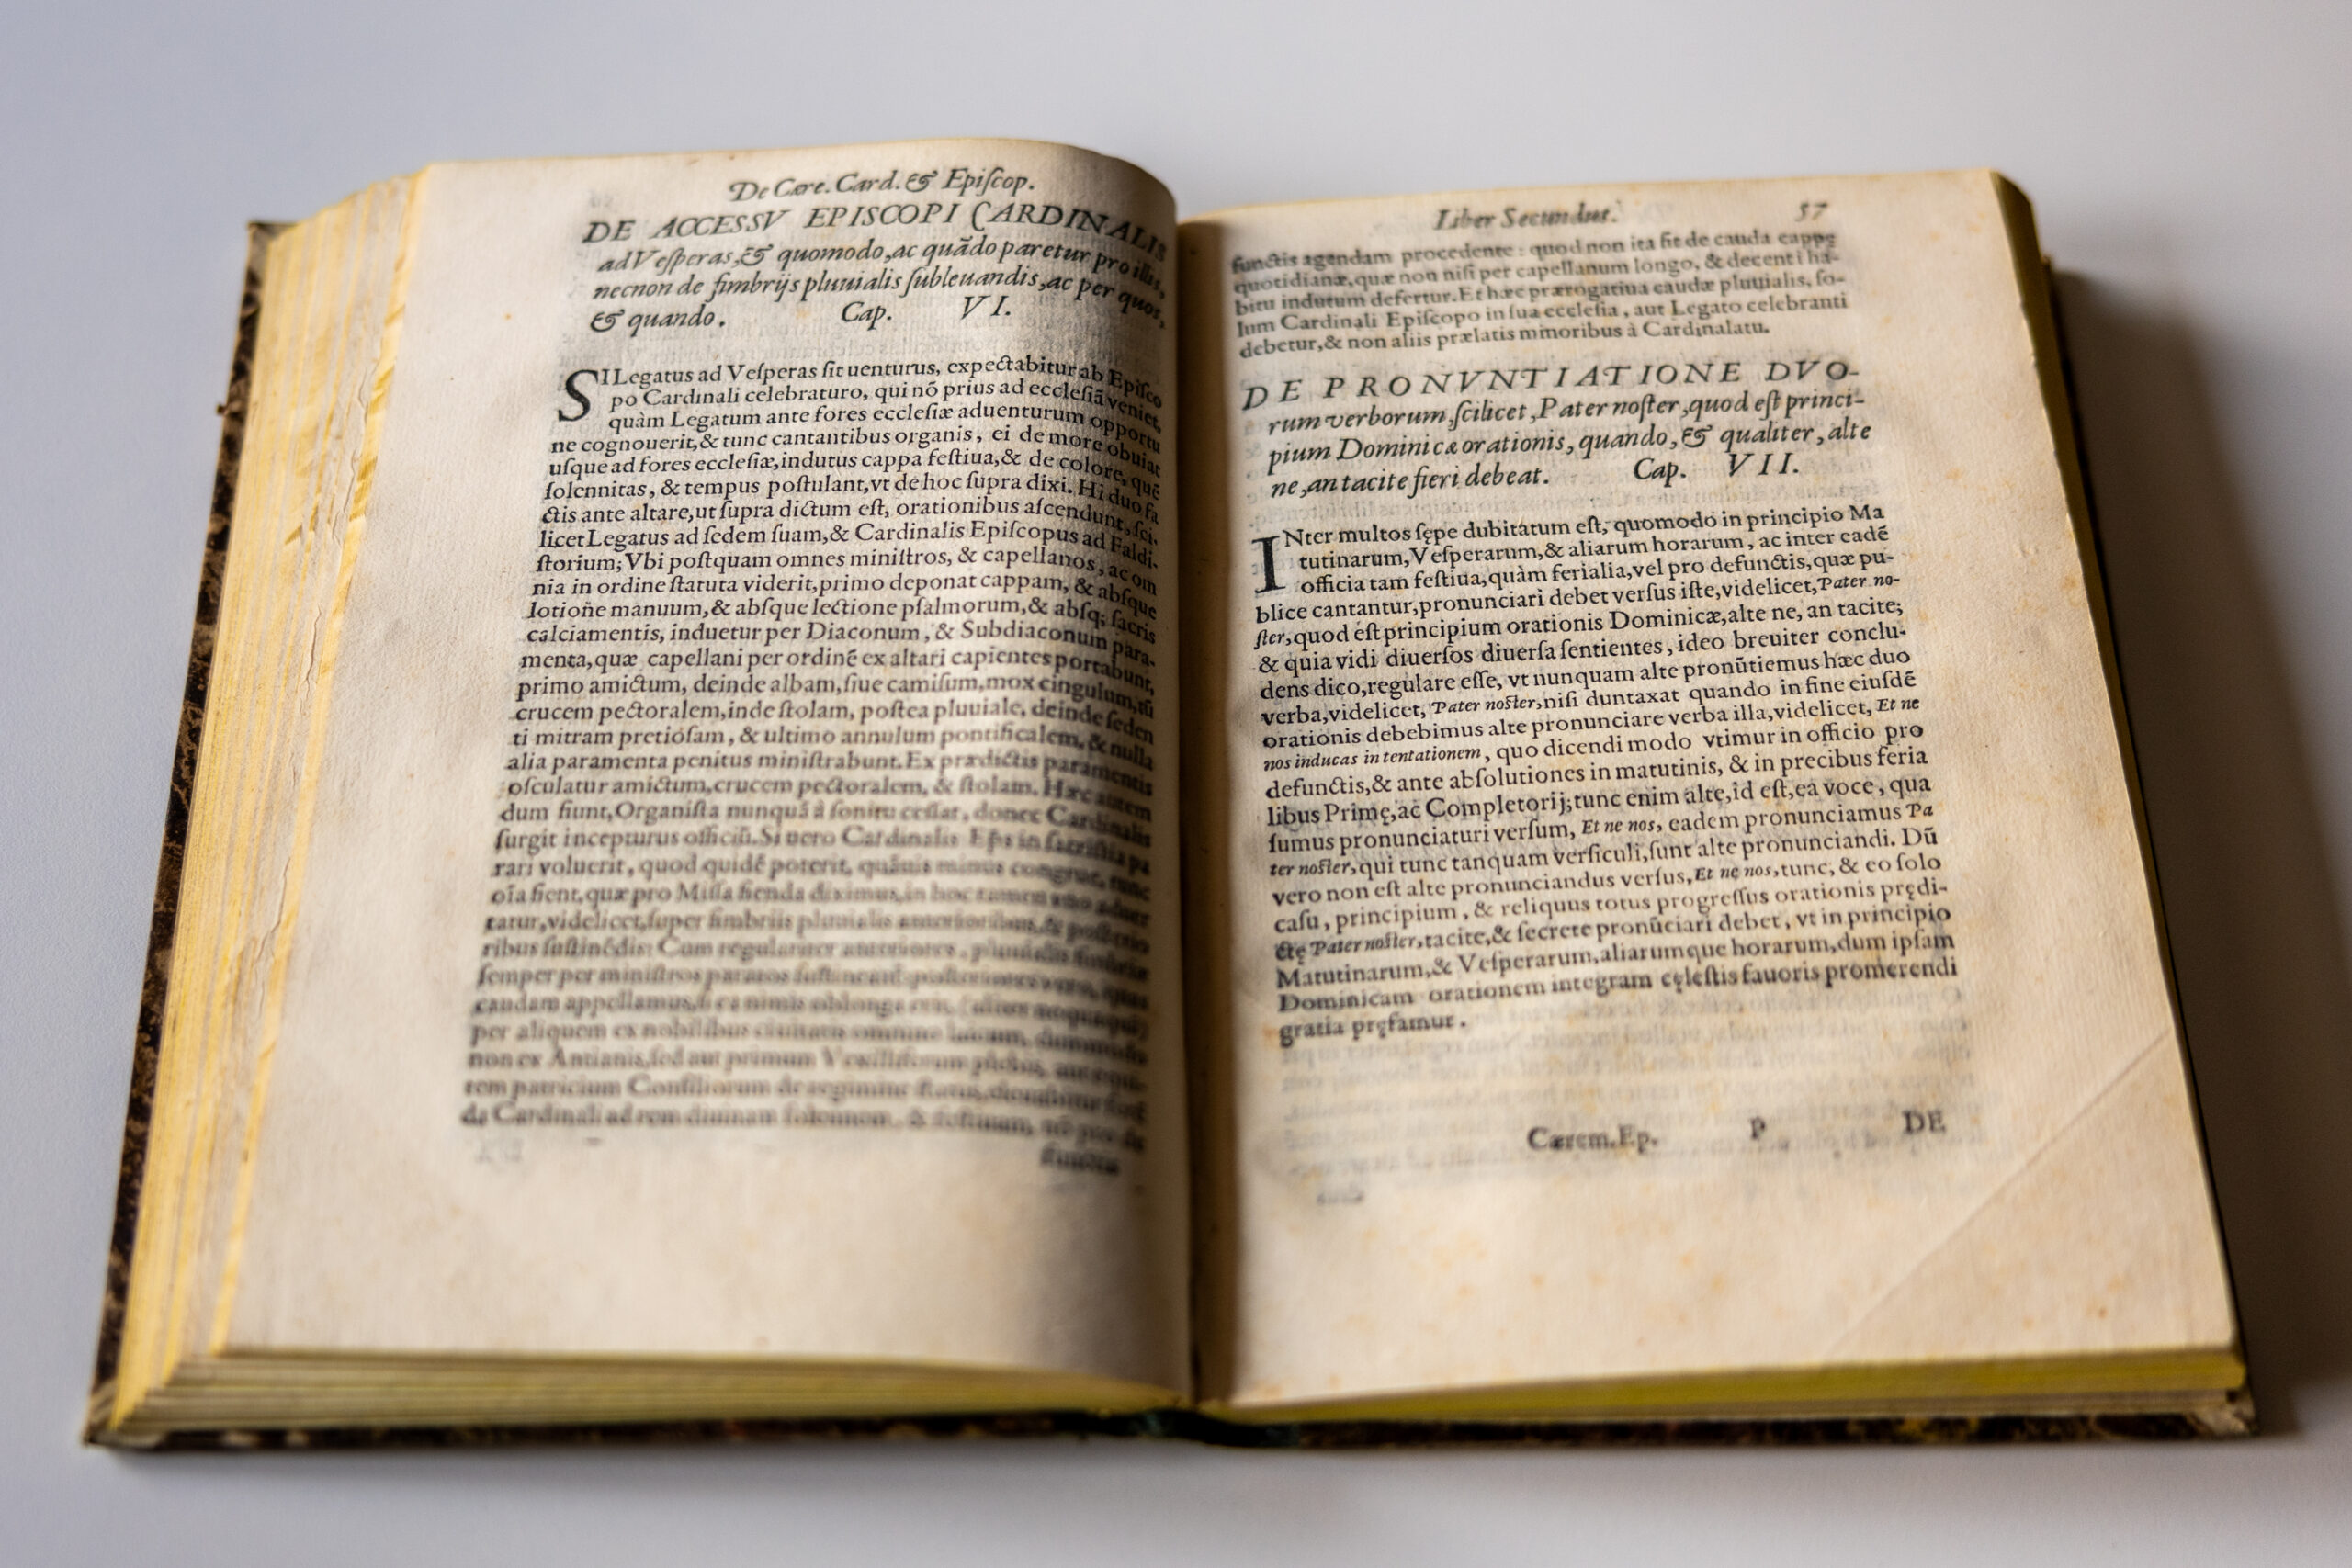 De Cære. Card. & Epiſcop.
DE ACCESSV EPISCOPI CARDINALIS
ad Veſperas, & quomodo, ac quādo paretur pro illis,
necnon de fimbrijs pluuialis ſubleuandis, ac per quos,
& quando. Cap. VI.
SI Legatus ad Veſperas ſit uenturus, expectabitur ab Epiſco
po Cardinali celebraturo, qui nō prius ad eccleſiā veniet,
quàm Legatum ante fores eccleſiæ aduenturum opportu
ne cognouerit, & tunc cantantibus organis, ei de more obuiat
uſque ad fores eccleſiæ, indutus cappa feſtiua, & de colore, quē
ſolennitas, & tempus poſtulant, vt de hoc ſupra dixi. Hi duo fa
ctis ante altare, ut ſupra dictum eſt, orationibus aſcendunt, ſci-
licet Legatus ad ſedem ſuam, & Cardinalis Epiſcopus ad Faldi-
ſtorium; Vbi poſtquam omnes miniſtros, & capellanos, ac om
nia in ordine ſtatuta viderit, primo deponat cappam, & abſque
lotione manuum, & abſque lectione pſalmorum, & abſq; ſacris
calciamentis, induetur per Diaconum, & Subdiaconum para-
menta, quæ capellani per ordinē ex altari capientes portabunt,
primo amictum, deinde albam, ſiue camiſum, mox cingulum, tū
crucem pectoralem, inde ſtolam, poſtea pluuiale, deinde ſeden
ti mitram pretioſam, & ultimo annulum pontificalem, & nulla
alia paramenta penitus miniſtrabunt. Ex prædictis paramentis
oſculatur amictum, crucem pectoralem, & ſtolam. Hæc autem
dum fiunt, Organiſta nunquā à ſonitu ceſſat, donec Cardinalis
ſurgit incepturus officiū. Si uero Cardinalis Epſ in ſacriſtia pa
rari voluerit, quod quidē poterit, quāuis minus congrue, tunc
oīa fient, quæ pro Miſſa fienda diximus, in hoc tamen
tatur, videlicet, ſuper fimbriis pluuialis anterioribus, & poſterio
ribus ſuſtinēdis: Cum regulariter anteriores, pluuialis fimbriæ
ſemper per miniſtros paratos
caudam appellamus, ſi ea nimis oblonga erit,
per aliquem ex nobilibus ciuitatis omnino laicum, dummodo
non ex Antianis, ſed aut primum Vexilliferum
tem patricium Conſiliorum
da Cardinali ad rem diuinam ſolennem, & feſtiuam,
functis
Liber Secundus. 57
functis agendam procedente: quod non ita fit de cauda cappę
quotidianæ, quæ non niſi per capellanum longo, & decenti ha-
bitu indutum defertur. Et hæc prærogatiua caudæ pluuialis, ſo-
lum Cardinali Epiſcopo in ſua eccleſia, aut Legato celebranti
debetur, & non aliis prælatis minoribus à Cardinalatu.
DE PRONVNTIATIONE DVO-
rum verborum, ſcilicet, Pater noſter, quod eſt princi-
pium Dominicæ orationis, quando, & qualiter, alte
ne, an tacite fieri debeat. Cap. VII.
INter multos ſępe dubitatum eſt, quomodo in principio Ma
tutinarum, Veſperarum, & aliarum horarum, ac inter eadē
officia tam feſtiua, quàm ferialia, vel pro defunctis, quæ pu-
blice cantantur, pronunciari debet verſus iſte, videlicet, Pater no-
ſter, quod eſt principium orationis Dominicæ, alte ne, an tacite;
& quia vidi diuerſos diuerſa ſentientes, ideo breuiter conclu-
dens dico, regulare eſſe, vt nunquam alte pronūtiemus hæc duo
verba, videlicet, Pater noſter, niſi duntaxat quando in fine eiuſdē
orationis debebimus alte pronunciare verba illa, videlicet, Et ne
nos inducas in tentationem, quo dicendi modo vtimur in officio pro
defunctis, & ante abſolutiones in matutinis, & in precibus feria
libus Primę, ac Completorij; tunc enim alte, id eſt, ea voce, qua
ſumus pronunciaturi verſum, Et ne nos, eadem pronunciamus Pa
ter noſter, qui tunc tanquam verſiculi, ſunt alte pronunciandi. Dū
vero non eſt alte pronunciandus verſus, Et ne nos, tunc, & eo ſolo
caſu, principium, & reliquus totus progreſſus orationis prędi-
ctę Pater noſter, tacite, & ſecrete pronūciari debet, vt in principio
Matutinarum, & Veſperarum, aliarumque horarum, dum ipſam
Dominicam orationem integram cęleſtis fauoris promerendi
gratia pręfamur.
Cærem. Ep. P DE